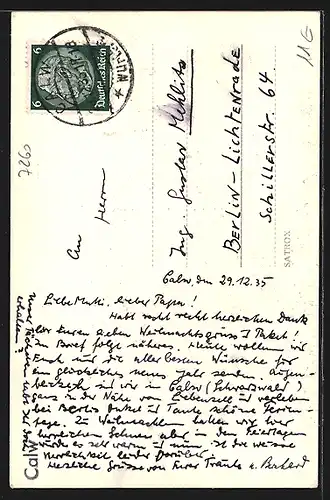 11G
6
Deutsches Reich
6
CALW
7260
An Herrn
Ing. Gustav
BERLIN-LICHTENRADE
Schillerstr. 64
SATROX
Calw, den 29.12.35
Liebe Mutti, lieber Papa!
Habt recht recht herzlichen Dank
für Euren lieben Weihnachtsgruss & Paket!
Im Brief folgt näheres. Heute wollen wir
Euch nur die allerbesten Wünsche für
ein glückliches neues Jahr senden. Augen-
blicklich sind wir in Calw (Schwarzwald)
ganz in der Nähe von Liebenzell und verleben
bei Onkel und Tante schöne Ferien-
tage. Zu Weihnachten haben wir hier
herrlichen Schnee aber in den Feiertagen
wurde es sehr warm & nun ist die weisse
Herrlichkeit leider
Herzliche Grüsse von Eurer Traute u. Gerhard
Calw